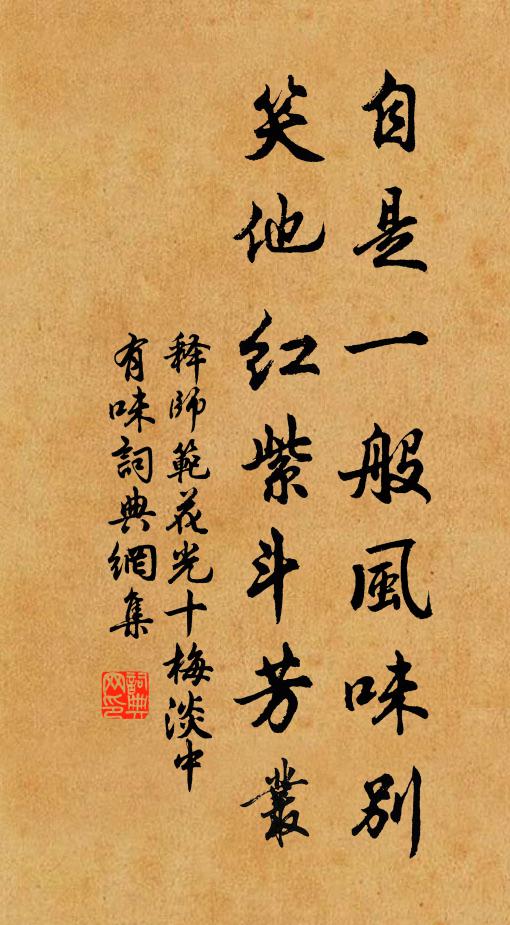 自是一般風味別
笑他紅紫斗芳叢
釋師範花光十梅淡中
有味詞典網集
詞典
网印